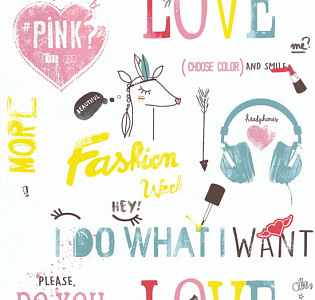 LOVE
#PiNK?
YES NO
me?
(CHOOSE COLOR) AND SMiLE
BEAUTIFUL
MORE
headphones
Fashion
Week
HEY!
I DO WHAT I WANT
PLEASE,
DO YOU
LOVE